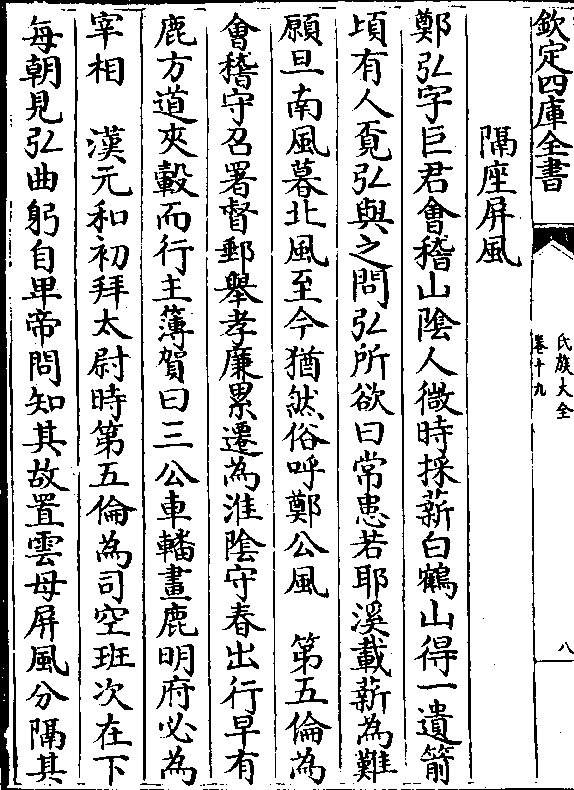 欽定四庫全書
氏族大全
卷十九
八
隔座屏風
鄭弘字巨君會稽山隂人微時採薪白鶴山得一遺箭
頃有人覔弘與之問弘所欲曰常患若耶溪載薪為難
願旦南風暮北風至今猶然俗呼鄭公風　第五倫為
會稽守召署督郵舉孝廉累遷為淮隂守春出行早有
鹿方道夾轂而行主簿賀曰三公車轓畫鹿明府必為
宰相　漢元和初拜太尉時第五倫為司空班次在下
每朝見弘曲躬自卑帝問知其故置雲母屏風分隔其